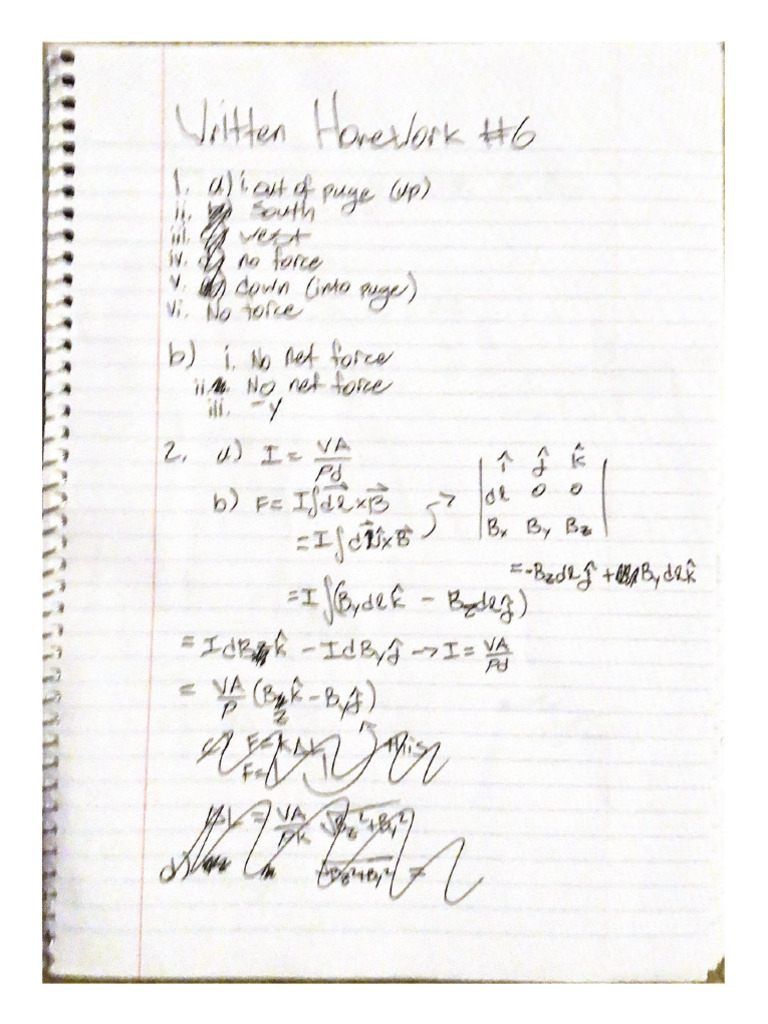 Written Homework #6
1. a) i. out of page (up)
ii. South
iii. west
iv. no force
v. down (into page)
vi. No force
b) i. No net force
ii. No net force
iii. -y
2. a) I = VA/ρd
b) F = I∫dl⃗×B⃗ → | î ĵ k̂ |
| dl 0 0 |
| Bx By Bz |
= I∫dlî×B⃗
= -Bzdlĵ + Bydlk̂
= I∫(Bydlk̂ - Bzdlĵ)
= IdBzk̂ - IdByĵ → I = VA/ρd
= VA/ρ (Bzk̂ - Byĵ)